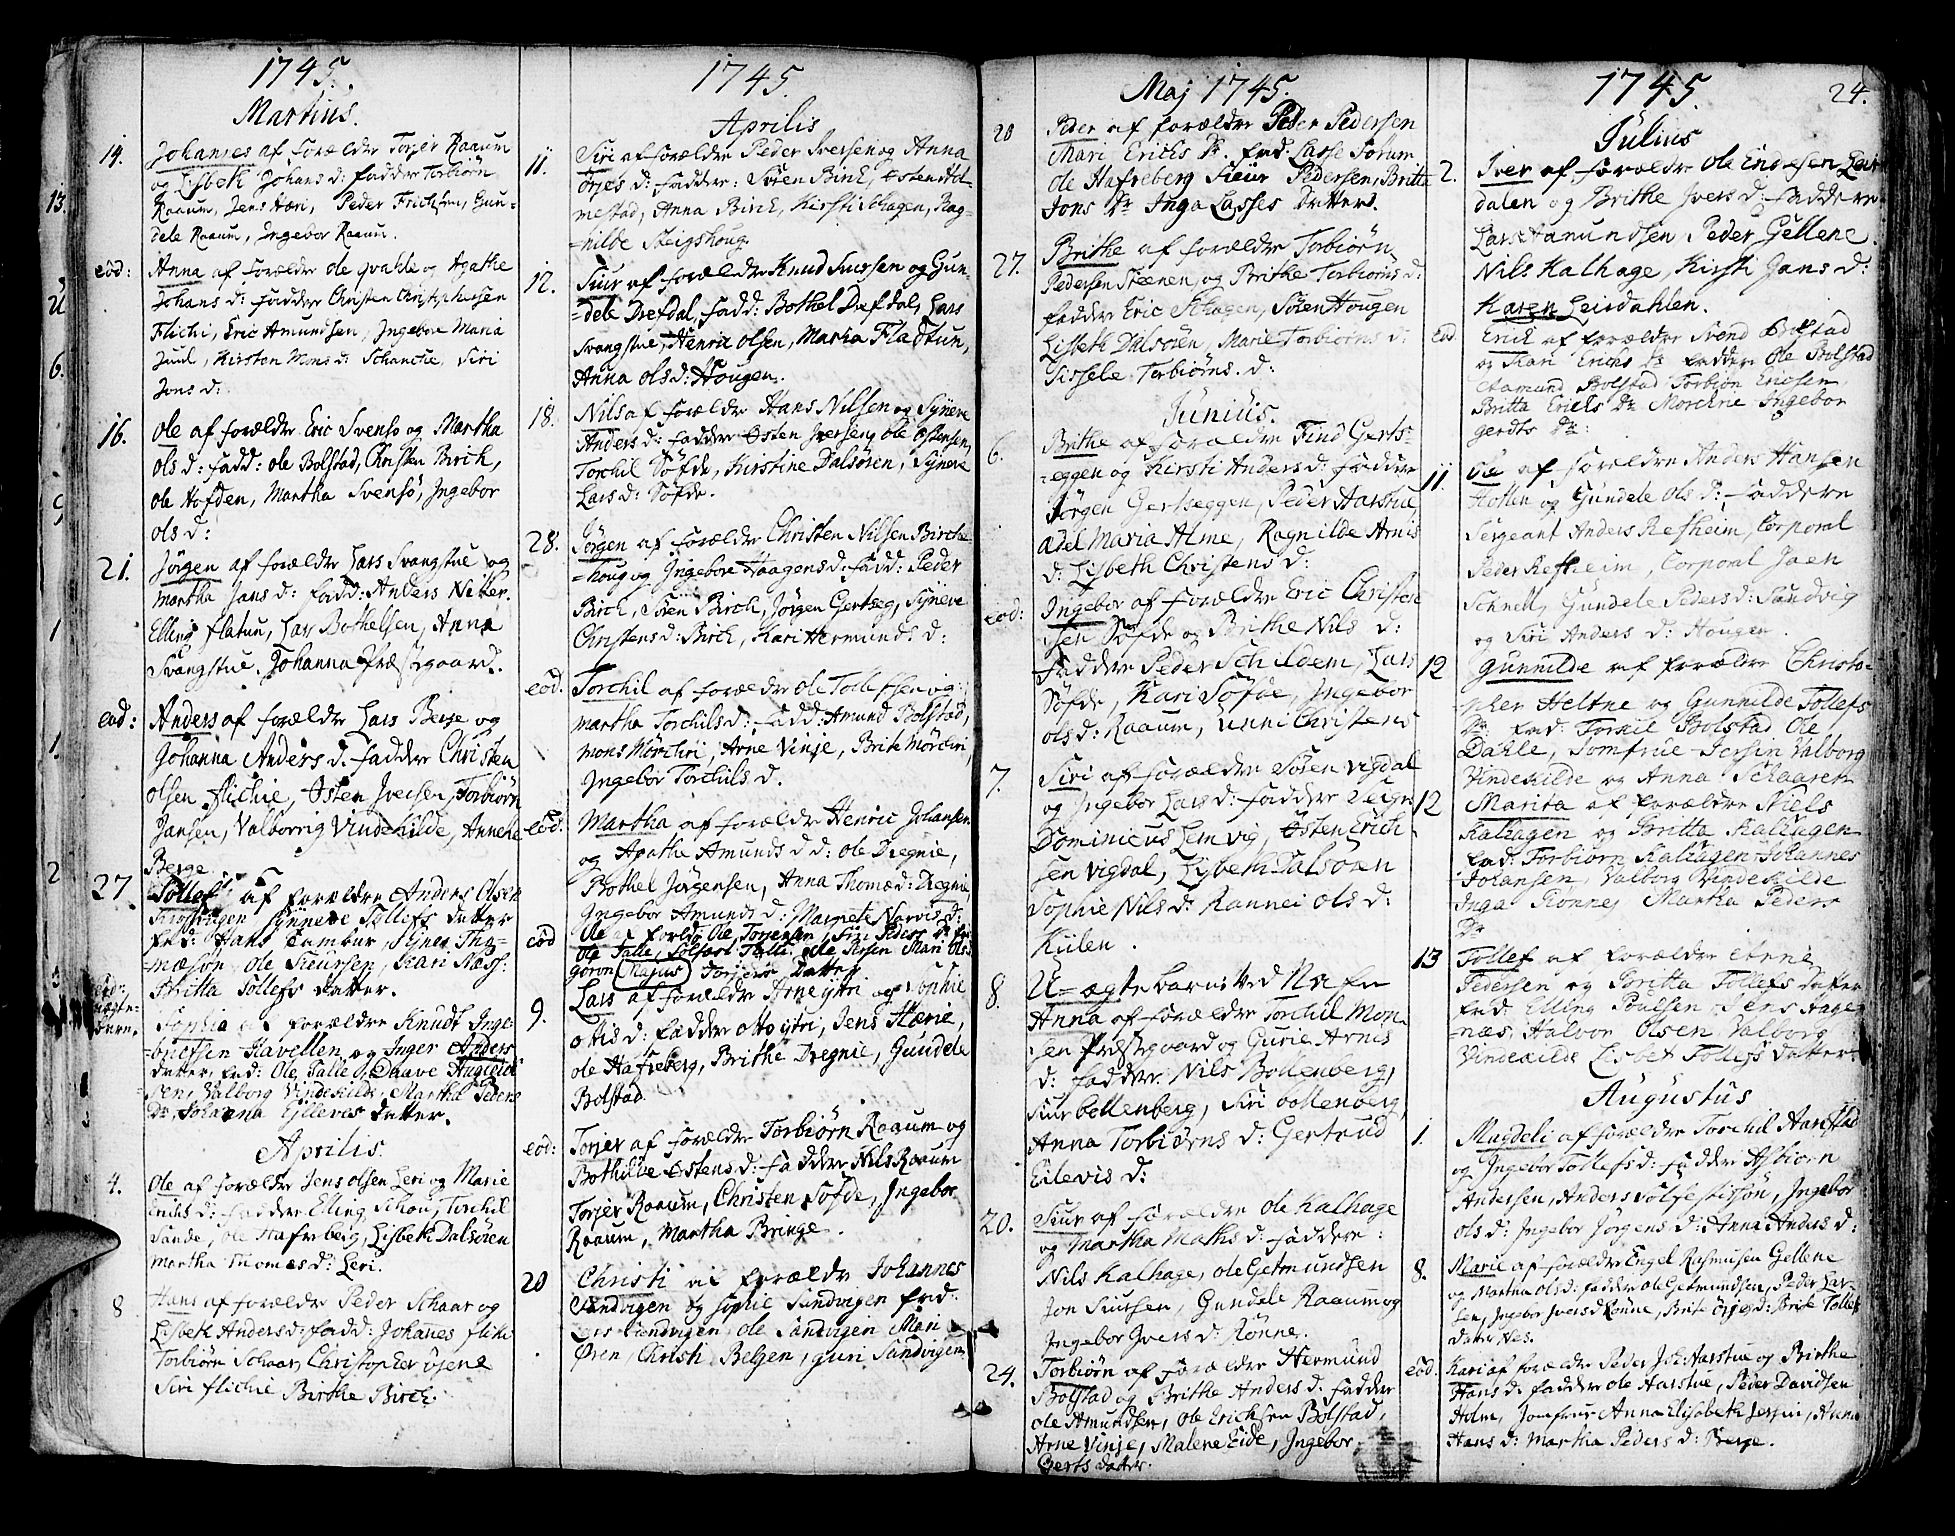 1745.
Martius.
14. Johannes af Forældre Torjer Raaum
og Lisbeth Johans d: Faddere Torbiörn
Raaum, Jens Hæri, Peder Erichsen, Gun-
dele Raaum, Ingebor Raaum.
eod: Anna af Forældre Ole Qvahle og Agathe
Johans d: Faddere Christen Christophersen
Flichi, Eric Amundsen, Ingebor Maria
Juul, Kirsten Mons d: Schanche, Siri
Jons d:
16. Ole af Forældre Eric Svensö og Martha
Ols d: Fadd: Ole Bolstad, Christen Birch,
Ole Hofden, Martha Svensö, Ingebor
Ols d:
21. Jörgen af Forældre Lars Svangstue og
Martha Jans d: Fadd: Anders
Elling Flatun, Lars Bothelsen, Anna
Svangstue. Johanna Præstgaard.
eod: Anders af Forældre Lars Berge og
Johanna Anders d. Faddere Christen
Olsen Flichie, Östen Iversen, Torbiörn
Jansen, Valborrig Vindekilde, Anneke
Berge.
27 Tollef af Forældre Anders Olsen
Synneve Tollefs datter
Fad: Hans Tambur, Siver Tho-
mæsön, Ole Sieursen, Kari Næss:
Britta Tollefs datter.
eod: uægte-
barn. Sophia af Forældre Knudt Inge-
brictsen Kavellen og Inger Anders
datter, Fad: Ole Palle, Daave
sen, Valborg Vindekilde, Martha Peders
Dr Johanna Ellevas datter.
Aprilis.
4. Ole af Forældre Jens Olsen Leri og Marie
Erichs d: Faddere Elling Schou, Torchil
Sande, Ole Hafreberg, Lisbeth Dalsören
Martha Thomæs d: Leri.
8 Hans af Forældre Peder Schaar og
Lisbeth Anders d: Fadd: Johannes Flichi
Torbiörn Schaar, Christopher Öiene
Siri Flichie Birthe Birch.
1745.
Aprilis
11. Siri af Forældre Peder Iversen og Anna
Örjes d: Faddere: Sören Birch, Östen Hol-
mestad, Anna Birch, Kirsti Schagen, Rag-
=nilde Steigshoug.
12. Siur af Forældre Knud Siursen og Gun-
=dele Drefdal, Fadd: Bothel Drefdal, Lars
Svangstue, Henric Olsen, Martha Fladtun,
Anna Ols d: Hougen.
18. Nils af Forældre Hans Nilsen og Syneve
Anders d: Faddere Östen Iversen, Ole Östensen,
Torchil Söfde, Kirstine Dalsören, Syneve
Lars d: Söfde.
28. Jörgen af Forældre Christen Nilsen Birche
=houg og Ingebor Haagens d: Fadd: Peder
Birch, Sören Birch, Jörgen Gertseg, Syneve
Christens d: Birch, Kari Hermunds d:
eod. Torchil af Forældre Ole Tollefsen og
Martha Torchils d: Fadd: Amund Bolstad,
Mons Mörchri, Arne Vinje, Brite Mörchri,
Ingebor Torchils d.
eod: Martha af Forældre Henric Johansen
og Agathe Amunds d d: Ole Dregnie,
Bothel Jörgensen, Anna Thomæ d: Dregnie,
Ingebor Amunds d: Margrete Narvis d:
eod Ole af Forældre Ole Torjersen, Siri Peders Dr
Ole Palle, Ole Iversen Mari Ols
(Majus) Torjers Datter
9. Lars af Forældre Arne Ytri og Sophie
Ottis d: Faddere Otto Ytri, Jens Hærie,
Ole Hafreberg, Brithe Dregnie, Gundele
Bolstad
eod: Torjer af Forældre Torbiörn Raaum og
Bothilde Östens d: Faddere Nils Raaum
Torjer Raaum, Christen Söfde, Ingebor
Raaum, Martha Bringe.
20 Christi af Forældre Johannes
Sandvigen og Sophie Sandvigen Fad:
Lars Sandvigen, Ole Sandvigen Mari
Ören, Christi Belgen, Guri Sandvigen
Maj 1745.
20 Peder af Forældre Peder Pedersen
Mari Erichs Dr. Fad: Lasse Sorum
Ole Hafreberg Sieur Pedersen, Britta
Jons Dr Inga Lasses Datters.
27. Brithe af Forældre Torbiörn
Pedersen Steenen, og Brithe Torbiörns d:
Faddere Eric Schagen, Sören Hougen
Lisbeth Dalsören, Marie Torbiörns d:
Sissele Torbiörns. d:
Junius.
6. Brithe af Forældre Find Gerts-
=eggen og Kirsti Anders d: Faddere
Jörgen Gertseggen, Peder Aarstue,
Adel Maria Alme, Ragnilde Arnis
d: Lisbeth Christens d:
eod: Ingebor af Forældre Eric Christen
sen Söfde og Brithe Nils d:
Faddere Peder Schildem, Lars
Söfde, Kari Söfde, Ingebor
Ols d: Raaum, Unni Christens
7. Siri af Forældre Sören Vigdal
og Ingebor Lars d: Faddere Seign
Dominicus Lemvig, Östen Erich
sen Vigdal, Lisbeth Dalsören
Sophie Nils d: Rannei Ols d:
Kiilen.
8. U=ægte barn ved
Anna af Forældre Torchil Mon-
sen Præstgaard og Gurie Arnis
d: Faddere Nils Bollenberg,
Siur Bollenberg, Siri Bollenberg,
Anna Torbiörns d: Gertrud
Eilevis d:
20. Siur af Forældre Ole Kalhage
og Martha Maths d: Faddere:
Nils Kalhage, Ole Getmundsen
Jon Siursen, Gundele Raaum og
Ingebor Ivers d: Rönne.
24. Torbiörn af Forældre Hermund
Bolstad og Brithe Anders d. Faddere
Ole Amundsen, Ole Ericksen Bolstad,
Arne Vinje, Malene Eide, Ingebor
Gerts Datter.
1745. 24.
Julius
2. Iver af Forældre Ole Endresen Leir
dalen og Brithe Ivers d: Faddere
Lars Hamundsen Peder Gellene.
Nils Kalhage, Kirsti Jans d:
Karen Leirdahlen.
eod. Erick af Forældre Svend Bolstad
og Kari Erichs Dr Faddere Ole Bolstad
Aamund Bolstad Torbiön Ericsen
Britta Erichs Dr Morchrie Ingebor
Gerdts Dr:
11. Ole af Forældre Anders Hansen
Hollen og Gundele Ols d: Faddere
Sergeant Anders Refheim, Corporal
Peder Refheim, Corporal Jaen
Schnell, Gundele Peders d: Sandvig
og Siri Anders d: Hougen.
12 Gunnilde af Forældre Christo-
pher Heltne og Gunnilde Tollefs
Dr. Fad: Torkil Bolstad Ole
Dahle, Jomfrue Jersin Valborg
Vindekilde og Anna Schaaren
12 Marita af Forældre Niels
Kalhagen og Britta Kalhagen
Fad: Torbiörn Kalhagen Johannes
Johansen, Valborg Vindekilde
Inga Rönnei Martha Peders
Dr
13 Tollef af Forældre Arne
Pedersen og Britta Tollefs Datter
Fad: Elling Poulsen, Jens Hage
næs, Halvor Olsen Valborg
Vindekilde Lisbet Tollefs Datter
Augustus
1. Magdeli af Forældre Torchil Harestad
og Ingebor Tollefs d: Faddere Asbiörn
Andersen, Anders Sölfestissön, Ingebor
Ols d: Ingebor Jörgens d: Anna Anders d:
8. Marie af Forældre Engel Rasmusen Gellene
og Martha Ols d: Faddere Ole Getmundsen, Peder Lar-
sen, Ingebor Ivers d Rönne, Brite Örjes d: Brite Tollefs
Datter Nes.
eod. Kari af Forældre Peder Joh: Aarstue og Birthe
Hans d: Faddere Ole Aarstue, Peder Davidsen
Holm, Jomfrue Anna Elisabeth Jersin, Anna
Hans d: Martha Peders d: Berge.